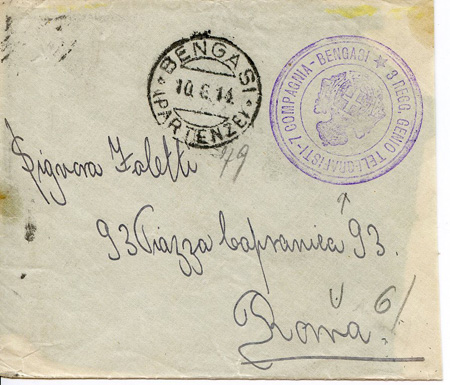 BENGASI
10.6.14
(PARTENZE)
3 REGG. GENIO TELEGRAFISTI - 7 COMPAGNIA - BENGASI
Signora Zoletti
93 Piazza Capranica 93.
Roma